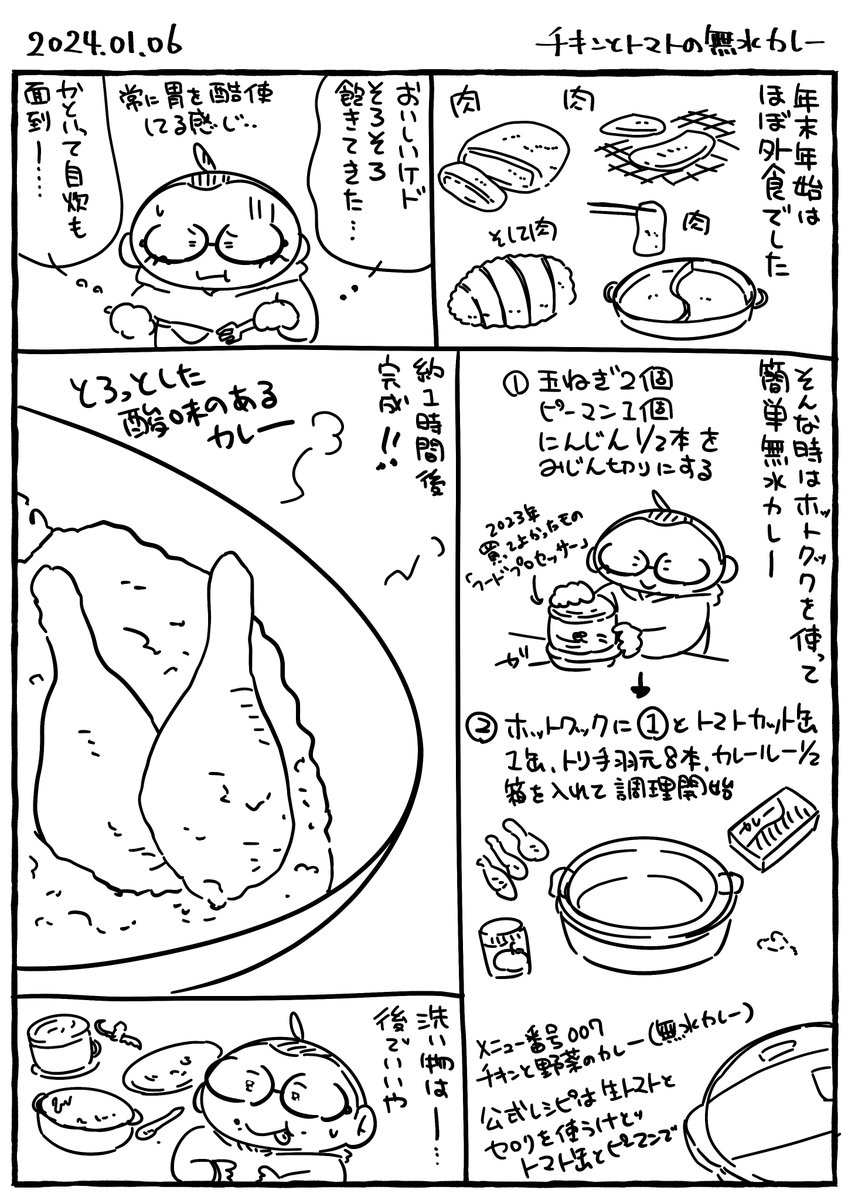 2024.01.06
チキンとトマトの無水カレー
年末年始は
ほぼ外食でした
肉
肉
肉
そして肉
おいしいけど
そろそろ
飽きてきた…
常に胃を酷使
してる感じ..
かといって自炊も
面到ー……
そんな時はホットクックを使って
簡単無水カレー
① 玉ねぎ2個
ピーマン1個
にんじん1/2本を
みじん切りにする
2023年
買ってよかったもの
「フードプロセッサー」
ガー
② ホットクックに①とトマトカット缶
1缶、トリ手羽元8本、カレールー1/2
箱を入れて調理開始
カレー
メニュー番号007
チキンと野菜のカレー(無水カレー)
公式レシピは生トマトと
セロリを使うけど
トマト缶とピーマンで
約1時間後
完成!!
とろっとした
酸味のある
カレー
洗い物はー…
後でいいや